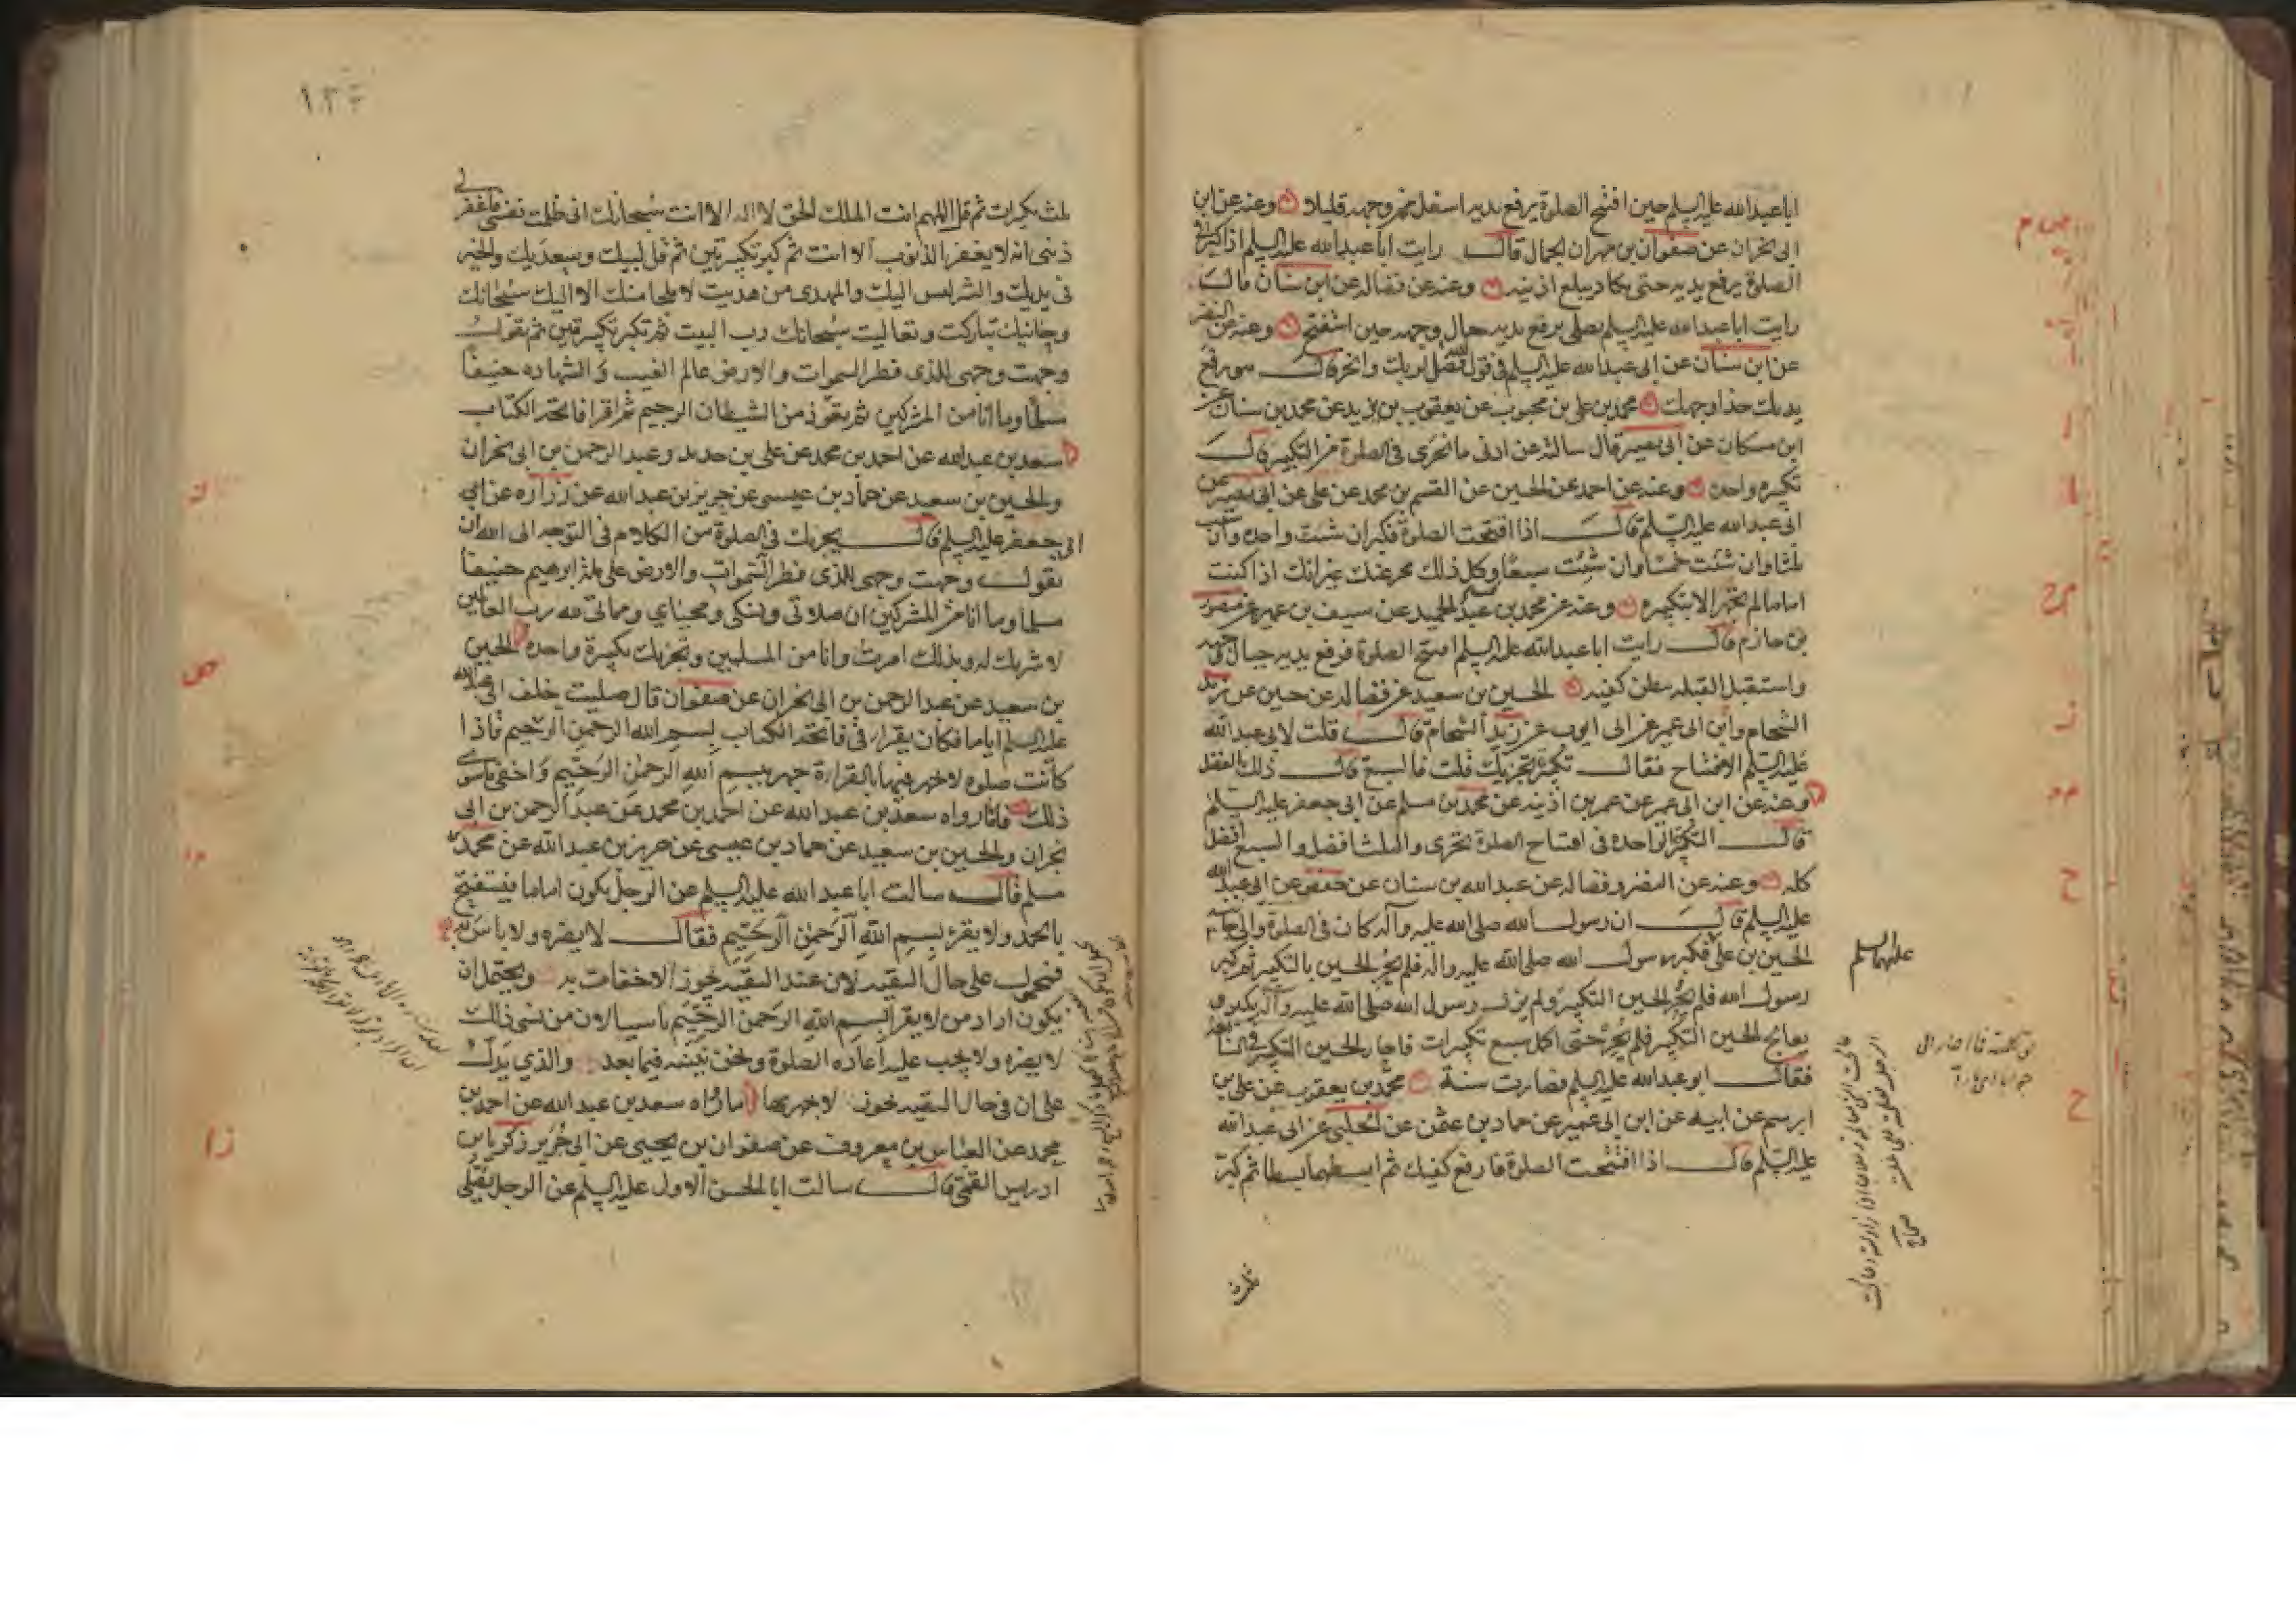 ابا عبدالله عليه السلم حين افتتح الصلوة يرفع يديه اسفل من وجهه قليلا وعنه عن ابن
ابى نجران عن صفوان بن مهران الجمال قال رايت ابا عبدالله عليه السلم اذا كبر فى
الصلوة يرفع يديه حتى يكاد يبلغ اذنيه وعنه عن فضاله عن ابن سنان قال
رايت ابا عبدالله عليه السلم يصلى يرفع يديه حيال وجهه حين استفتح وعنه عن النضر
عن ابن سنان عن ابى عبدالله عليه السلم فى قول الله فصل لربك وانحر قال هو رفع
يديك حذا وجهك محمد بن على بن محبوب عن يعقوب بن يزيد عن محمد بن سنان عن
ابن مسكان عن ابى بصير قال سالته عن ادنى ما تجزى فى الصلوة من التكبير قال
تكبيره واحده وعنه عن احمد عن الحسين عن القسم بن محمد عن على عن ابى بصير عن
ابى عبدالله عليه السلم قال اذا افتتحت الصلوة فكبر ان شئت واحده وان شئت
ثلثا وان شئت خمسا وان شئت سبعا وكل ذلك مجز عنك غير انك اذا كنت
اماما لم تجهر الا بتكبيره وعنه عن محمد بن عبد الحميد عن سيف بن عميره عن منصور
بن حازم قال رايت ابا عبدالله عليه السلم افتتح الصلوة فرفع يديه حيال وجهه
واستقبل القبله ببطن كفيه الحسين بن سعيد عن فضاله عن حسين عن زيد
الشحام وابن ابى عمير عن ابى ايوب عن زيد الشحام قال قلت لابى عبدالله
عليه السلم الافتتاح فقال تكبيرة تجزيك قلت فالسبع قال ذلك الفضل
وعنه عن ابن ابى عمير عن عمر بن اذينه عن محمد بن مسلم عن ابى جعفر عليه السلم
قال التكبيرة الواحده فى افتتاح الصلوة تجزى والثلث افضل والسبع افضل
كله وعنه عن النضر و فضاله عن عبدالله بن سنان عن حفص عن ابى عبدالله
عليه السلم قال ان رسول الله صلى الله عليه وآله كان فى الصلوة والى جانبه
الحسين بن على فكبر رسول الله صلى الله عليه واله فلم يحر الحسين بالتكبير ثم كبر
رسول الله فلم يحر الحسين التكبير ولم يزل رسول الله صلى الله عليه وآله يكبر و
يعالج الحسين التكبير فلم يحر حتى اكمل سبع تكبيرات فاحار الحسين التكبير فى السابعة
فقال ابو عبدالله عليه السلم فصارت سنة محمد بن يعقوب عن على بن
ابرهيم عن ابيه عن ابن ابى عمير عن حماد بن عثمن عن الحلبى عن ابى عبدالله
عليه السلم قال اذا افتتحت الصلوة فارفع كفيك ثم ابسطهما بسطا ثم كبر
عليهما السلم
ثلاث
١٣٤
ثلث تكبيرات ثم قل اللهم انت الملك الحق لا اله الا انت سبحانك انى ظلمت نفسى فاغفر لى
ذنبى انه لا يغفر الذنوب الا انت ثم كبر تكبيرتين ثم قل لبيك وسعديك والخير
فى يديك والشر ليس اليك والمهدى من هديت لا ملجا منك الا اليك سبحانك
وحنانيك تباركت وتعاليت سبحانك رب البيت ثم تكبر تكبيرتين ثم تقول
وجهت وجهى للذى فطر السموات والارض عالم الغيب والشهاده حنيفا
مسلما وما انا من المشركين ثم تعوذ من الشيطان الرجيم ثم اقرا فاتحة الكتاب
سعد بن عبدالله عن احمد بن محمد عن على بن حديد وعبد الرحمن بن ابى نجران
والحسين بن سعيد عن حماد بن عيسى عن حريز بن عبدالله عن زراره عن ابى
ابى جعفر عليه السلم قال يجزيك فى الصلوة من الكلام فى التوجه الى الله ان
تقول وجهت وجهى للذى فطر السموات والارض على ملة ابرهيم حنيفا
مسلما وما انا من المشركين ان صلاتى ونسكى ومحياى ومماتى لله رب العالمين
لا شريك له وبذلك امرت وانا من المسلمين وتجزيك تكبيرة واحده الحسين
بن سعيد عن عبد الرحمن بن ابى نجران عن صفوان قال صليت خلف ابى عبدالله
عليه السلم اياما فكان يقرا فى فاتحة الكتاب بسم الله الرحمن الرحيم فاذا
كانت صلوه لا تجهر فيها بالقراءة جهر ببسم الله الرحمن الرحيم واخفى ما سوى
ذلك فاما رواه سعد بن عبدالله عن احمد بن محمد عن عبد الرحمن بن ابى
نجران والحسين بن سعيد عن حماد بن عيسى عن حريز بن عبدالله عن محمد بن
مسلم قال سالت ابا عبدالله عليه السلم عن الرجل يكون اماما فيستفتح
بالحمد ولا يقرء بسم الله الرحمن الرحيم فقال لا يضره ولا باس به
فمحمول على حال التقيه لان عند التقيه يجوز الاخفات به ويحتمل ان
يكون اراد من لا يقرا بسم الله الرحمن الرحيم ناسيا لان من نسى ذلك
لا يضره ولا يجب عليه اعاده الصلوة ونحن نبينه فيما بعد والذي يدل
على ان فى حال التقيه يجوز لا يجهر بها ما رواه سعد بن عبدالله عن احمد بن
محمد عن العباس بن معروف عن صفوان بن يحيى عن ابى جرير زكريا بن
ادريس القمى قال سالت ابا الحسن الاول عليه السلم عن الرجل يصلى